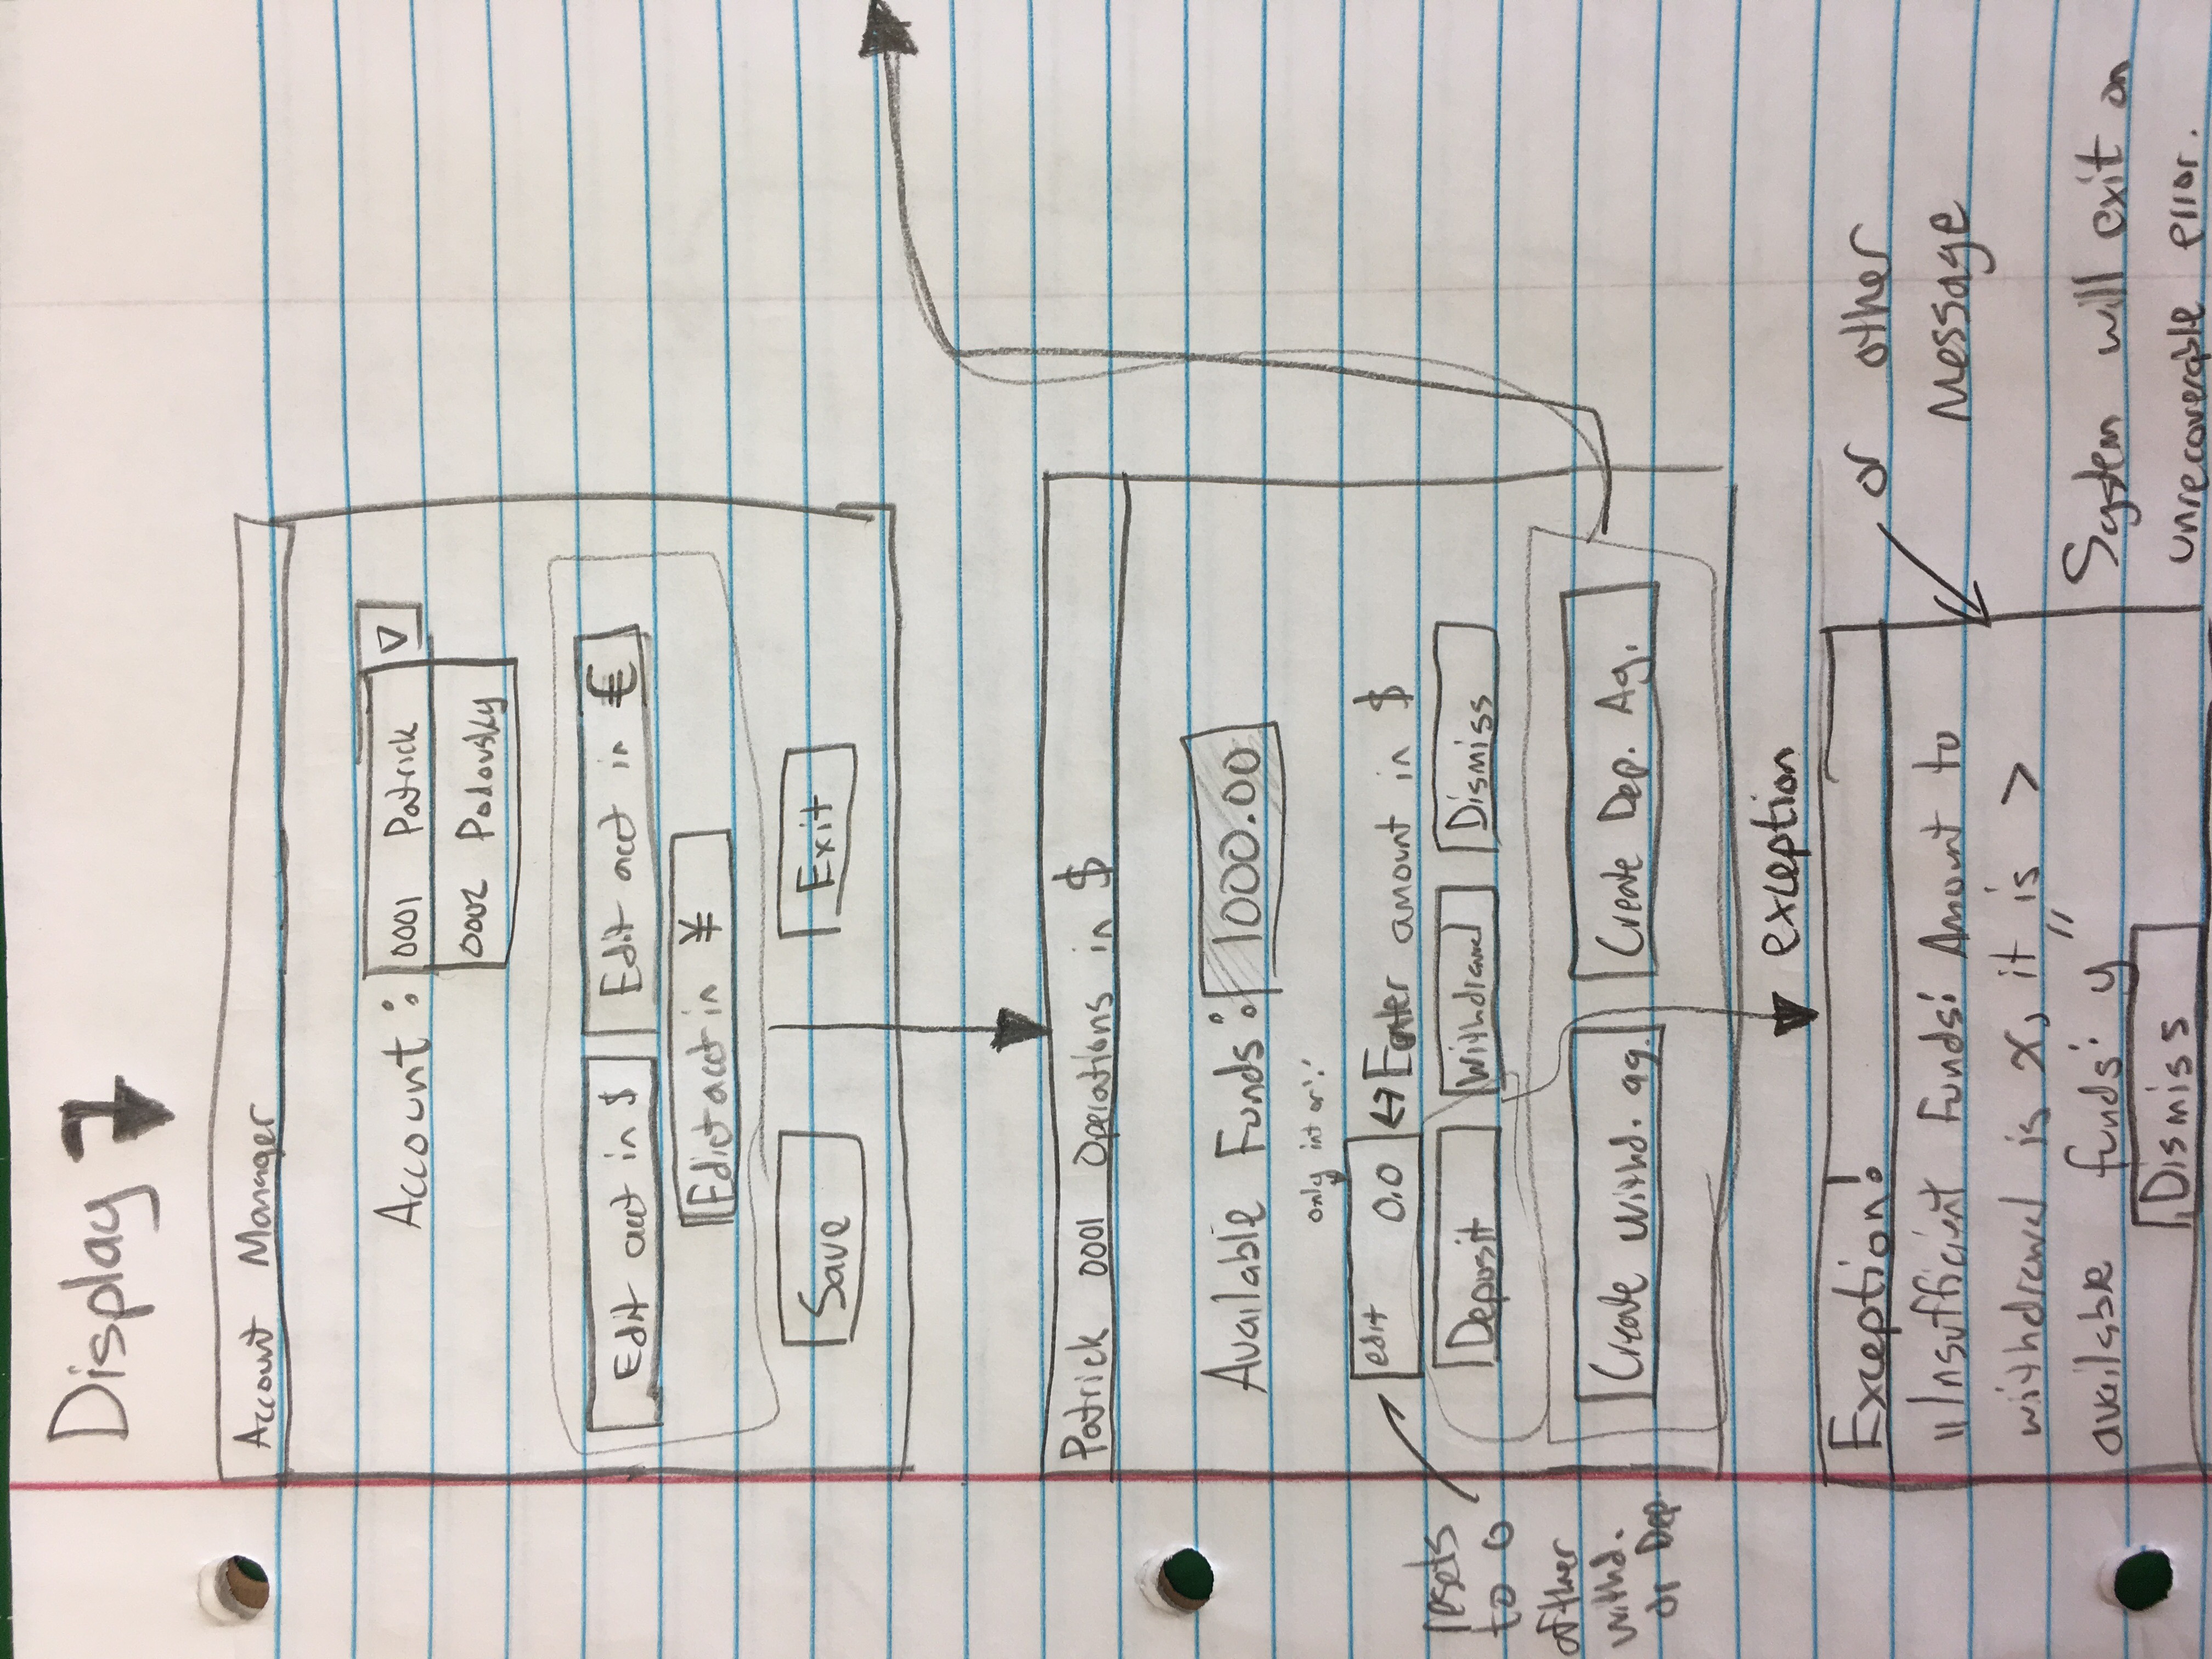 Display
Account Manager
Account: 0001 Patrick
0002 Podovsky
Edit acct in $ Edit acct in €
Edict acct in ¥
Save Exit
Patrick 0001 Operations in $
Available Funds: 1000.00
only int or '.'
edit 0.0 Enter amount in $
Deposit Withdrawl Dismiss
resets
to 0
afther
withd.
or Dep.
Create Withd. ag. Create Dep. Ag.
exception
Exception!
"Insufficient Funds: Amount to
withdrawl is x, it is >
available funds: y"
Dismiss
or other
Message
System will exit on
unrecoverable error.